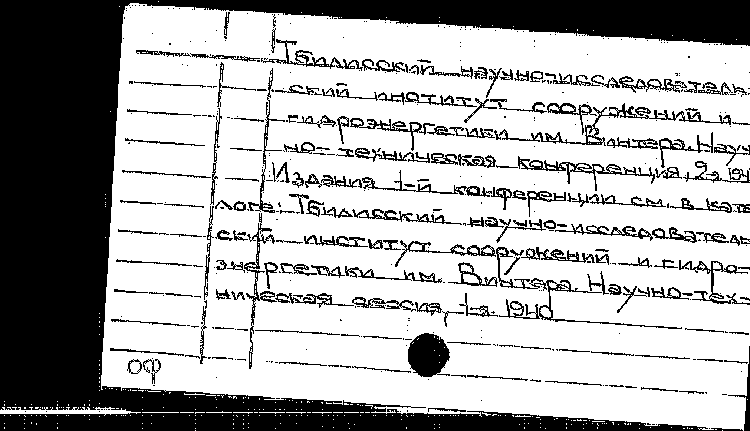 Тбилисский научно-исследователь-
ский институт сооружений и
гидроэнергетики им. Винтера. Науч-
но-техническая конференция, 2-я. 194
Издания 1-й конференции см. в ката
логе: Тбилисский научно-исследователь-
ский институт сооружений и гидро-
энергетики им. Винтера. Научно-тех-
ническая сессия, 1-я. 1940
ОФ